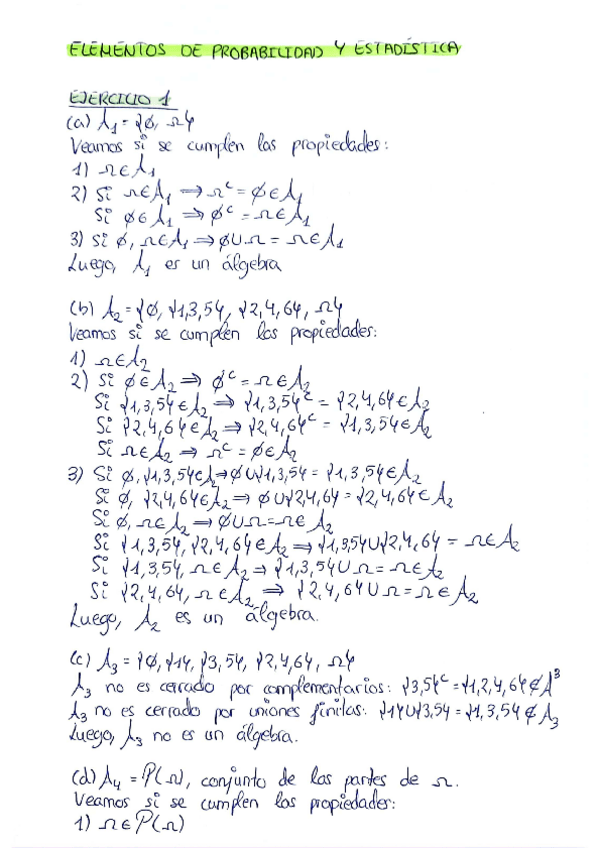 ELEMENTOS DE PROBABILIDAD Y ESTADÍSTICA
EJERCICIO 1
(a) A₁ = {∅, Ω}
Veamos si se cumplen las propiedades:
1) Ω ∈ A₁
2) Si Ω ∈ A₁ ⇒ Ωᶜ = ∅ ∈ A₁
Si ∅ ∈ A₁ ⇒ ∅ᶜ = Ω ∈ A₁
3) Si ∅, Ω ∈ A₁ ⇒ ∅ ∪ Ω = Ω ∈ A₁
Luego, A₁ es un álgebra
(b) A₂ = {∅, {1,3,5}, {2,4,6}, Ω}
Veamos si se cumplen las propiedades:
1) Ω ∈ A₂
2) Si ∅ ∈ A₂ ⇒ ∅ᶜ = Ω ∈ A₂
Si {1,3,5} ∈ A₂ ⇒ {1,3,5}ᶜ = {2,4,6} ∈ A₂
Si {2,4,6} ∈ A₂ ⇒ {2,4,6}ᶜ = {1,3,5} ∈ A₂
Si Ω ∈ A₂ ⇒ Ωᶜ = ∅ ∈ A₂
3) Si ∅, {1,3,5} ∈ A₂ ⇒ ∅ ∪ {1,3,5} = {1,3,5} ∈ A₂
Si ∅, {2,4,6} ∈ A₂ ⇒ ∅ ∪ {2,4,6} = {2,4,6} ∈ A₂
Si ∅, Ω ∈ A₂ ⇒ ∅ ∪ Ω = Ω ∈ A₂
Si {1,3,5}, {2,4,6} ∈ A₂ ⇒ {1,3,5} ∪ {2,4,6} = Ω ∈ A₂
Si {1,3,5}, Ω ∈ A₂ ⇒ {1,3,5} ∪ Ω = Ω ∈ A₂
Si {2,4,6}, Ω ∈ A₂ ⇒ {2,4,6} ∪ Ω = Ω ∈ A₂
Luego, A₂ es un álgebra.
(c) A₃ = {∅, {1}, {3,5}, {2,4,6}, Ω}
A₃ no es cerrado por complementarios: {3,5}ᶜ = {1,2,4,6} ∉ A³
A₃ no es cerrado por uniones finitas: {1} ∪ {3,5} = {1,3,5} ∉ A₃
Luego, A₃ no es un álgebra.
(d) A₄ = P(Ω), conjunto de las partes de Ω.
Veamos si se cumplen las propiedades:
1) Ω ∈ P(Ω)